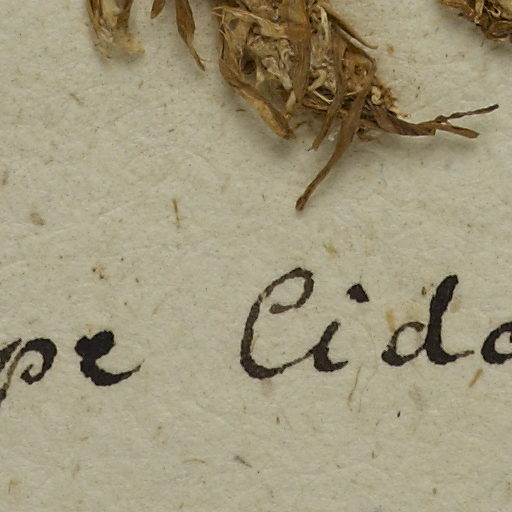 pe Cida